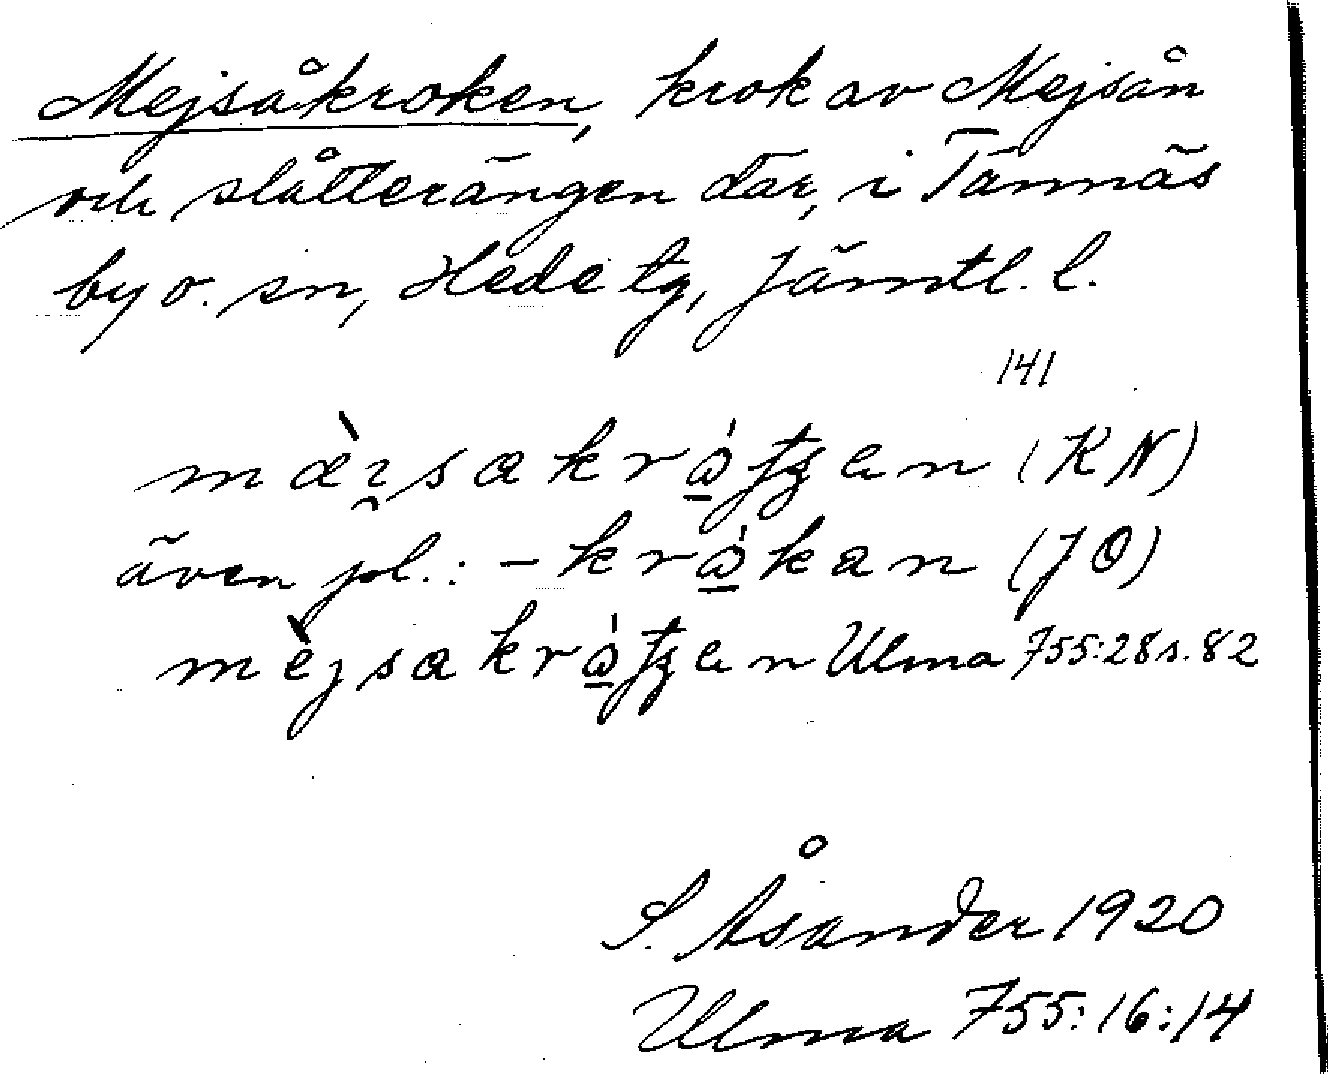 Mejsåkroken, krok av Mejsån
och slåtterängen där, i Tännäs
by o. sn, Hede tg, Jämtl. l.
141
(KN)
även pl.: (JO)
Ulma 755:28 s. 82
S. Åsander 1920
Ulma 755:16:14